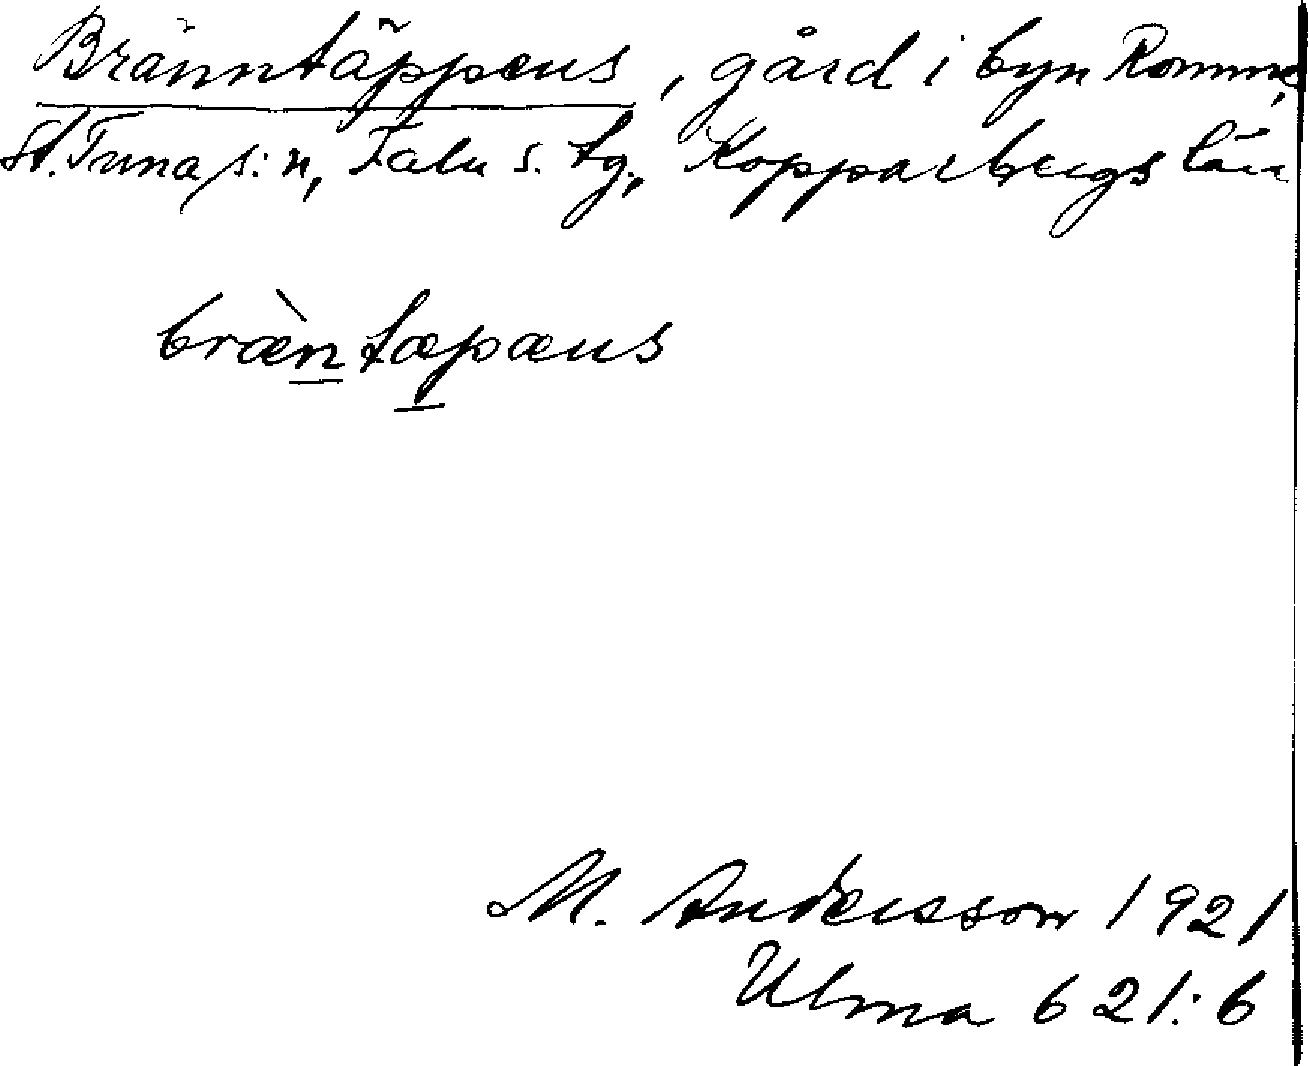 Bränntäppæus, gård i byn Romme,
St. Tuna s:n, Falu s. tg, Kopparbergs län
bræ̀ntæpæus
M. Andersson 1921
Ulma 621:6